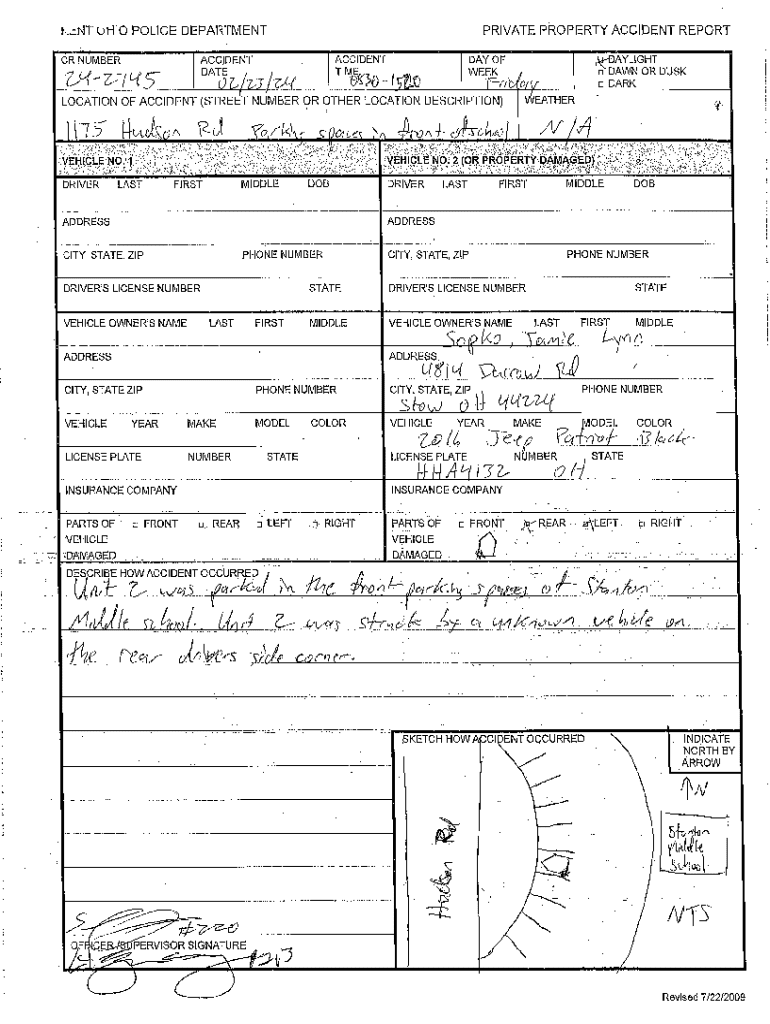 KENT OHIO POLICE DEPARTMENT PRIVATE PROPERTY ACCIDENT REPORT
CR NUMBER ACCIDENT DATE ACCIDENT TIME DAY OF WEEK DAYLIGHT
24-2745 02/23/24 0830-1520 Friday DAWN OR DUSK
DARK
LOCATION OF ACCIDENT (STREET NUMBER OR OTHER LOCATION DESCRIPTION) WEATHER
1175 Hudson Rd Parking spaces in front of school N/A
VEHICLE NO. 1 VEHICLE NO. 2 (OR PROPERTY DAMAGED)
DRIVER LAST FIRST MIDDLE DOB DRIVER LAST FIRST MIDDLE DOB
ADDRESS ADDRESS
CITY STATE, ZIP PHONE NUMBER CITY, STATE, ZIP PHONE NUMBER
DRIVER'S LICENSE NUMBER STATE DRIVER'S LICENSE NUMBER STATE
VEHICLE OWNER'S NAME LAST FIRST MIDDLE VEHICLE OWNER'S NAME LAST FIRST MIDDLE
Sopko, Jamie Lynn
ADDRESS ADDRESS
4814 Darrow Rd
CITY, STATE ZIP PHONE NUMBER CITY, STATE, ZIP PHONE NUMBER
Stow OH 44224
VEHICLE YEAR MAKE MODEL COLOR VEHICLE YEAR MAKE MODEL COLOR
2016 Jeep Patriot Black
LICENSE PLATE NUMBER STATE LICENSE PLATE NUMBER STATE
HHA4132 OH
INSURANCE COMPANY INSURANCE COMPANY
PARTS OF FRONT REAR LEFT RIGHT PARTS OF FRONT REAR LEFT RIGHT
VEHICLE VEHICLE
DAMAGED DAMAGED
DESCRIBE HOW ACCIDENT OCCURRED
Unit 2 was parked in the front parking spaces of Stanton
Middle school. Unit 2 was struck by a unknown vehicle on
the rear drivers side corner.
SKETCH HOW ACCIDENT OCCURRED INDICATE
NORTH BY
ARROW
N
Hudson Rd
Stanton
Middle
School
NTS
#220
OFFICER/SUPERVISOR SIGNATURE
Revised 7/22/2009